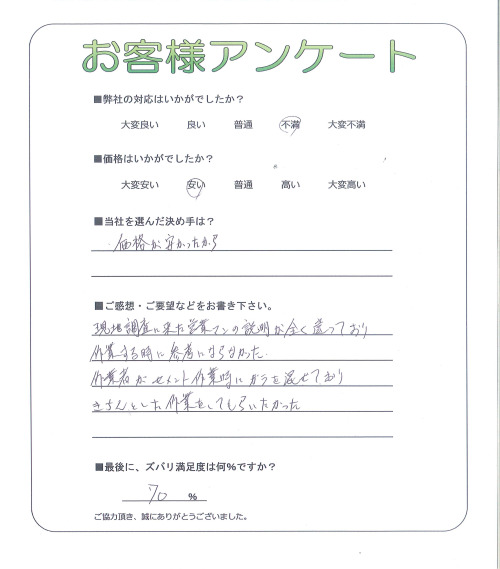 お客様アンケート
■弊社の対応はいかがでしたか？
大変良い 良い 普通 不満 大変不満
■価格はいかがでしたか？
大変安い 安い 普通 高い 大変高い
■当社を選んだ決め手は？
価格が安かったから
■ご感想・ご要望などをお書き下さい。
現地調査に来た営業マンの説明が全く違っており
作業する時に参考にならなかった.
作業者がセメント作業時にガラを混ぜており
きちんとした作業をしてもらいたかった
■最後に、ズバリ満足度は何%ですか？
70 %
ご協力頂き、誠にありがとうございました。